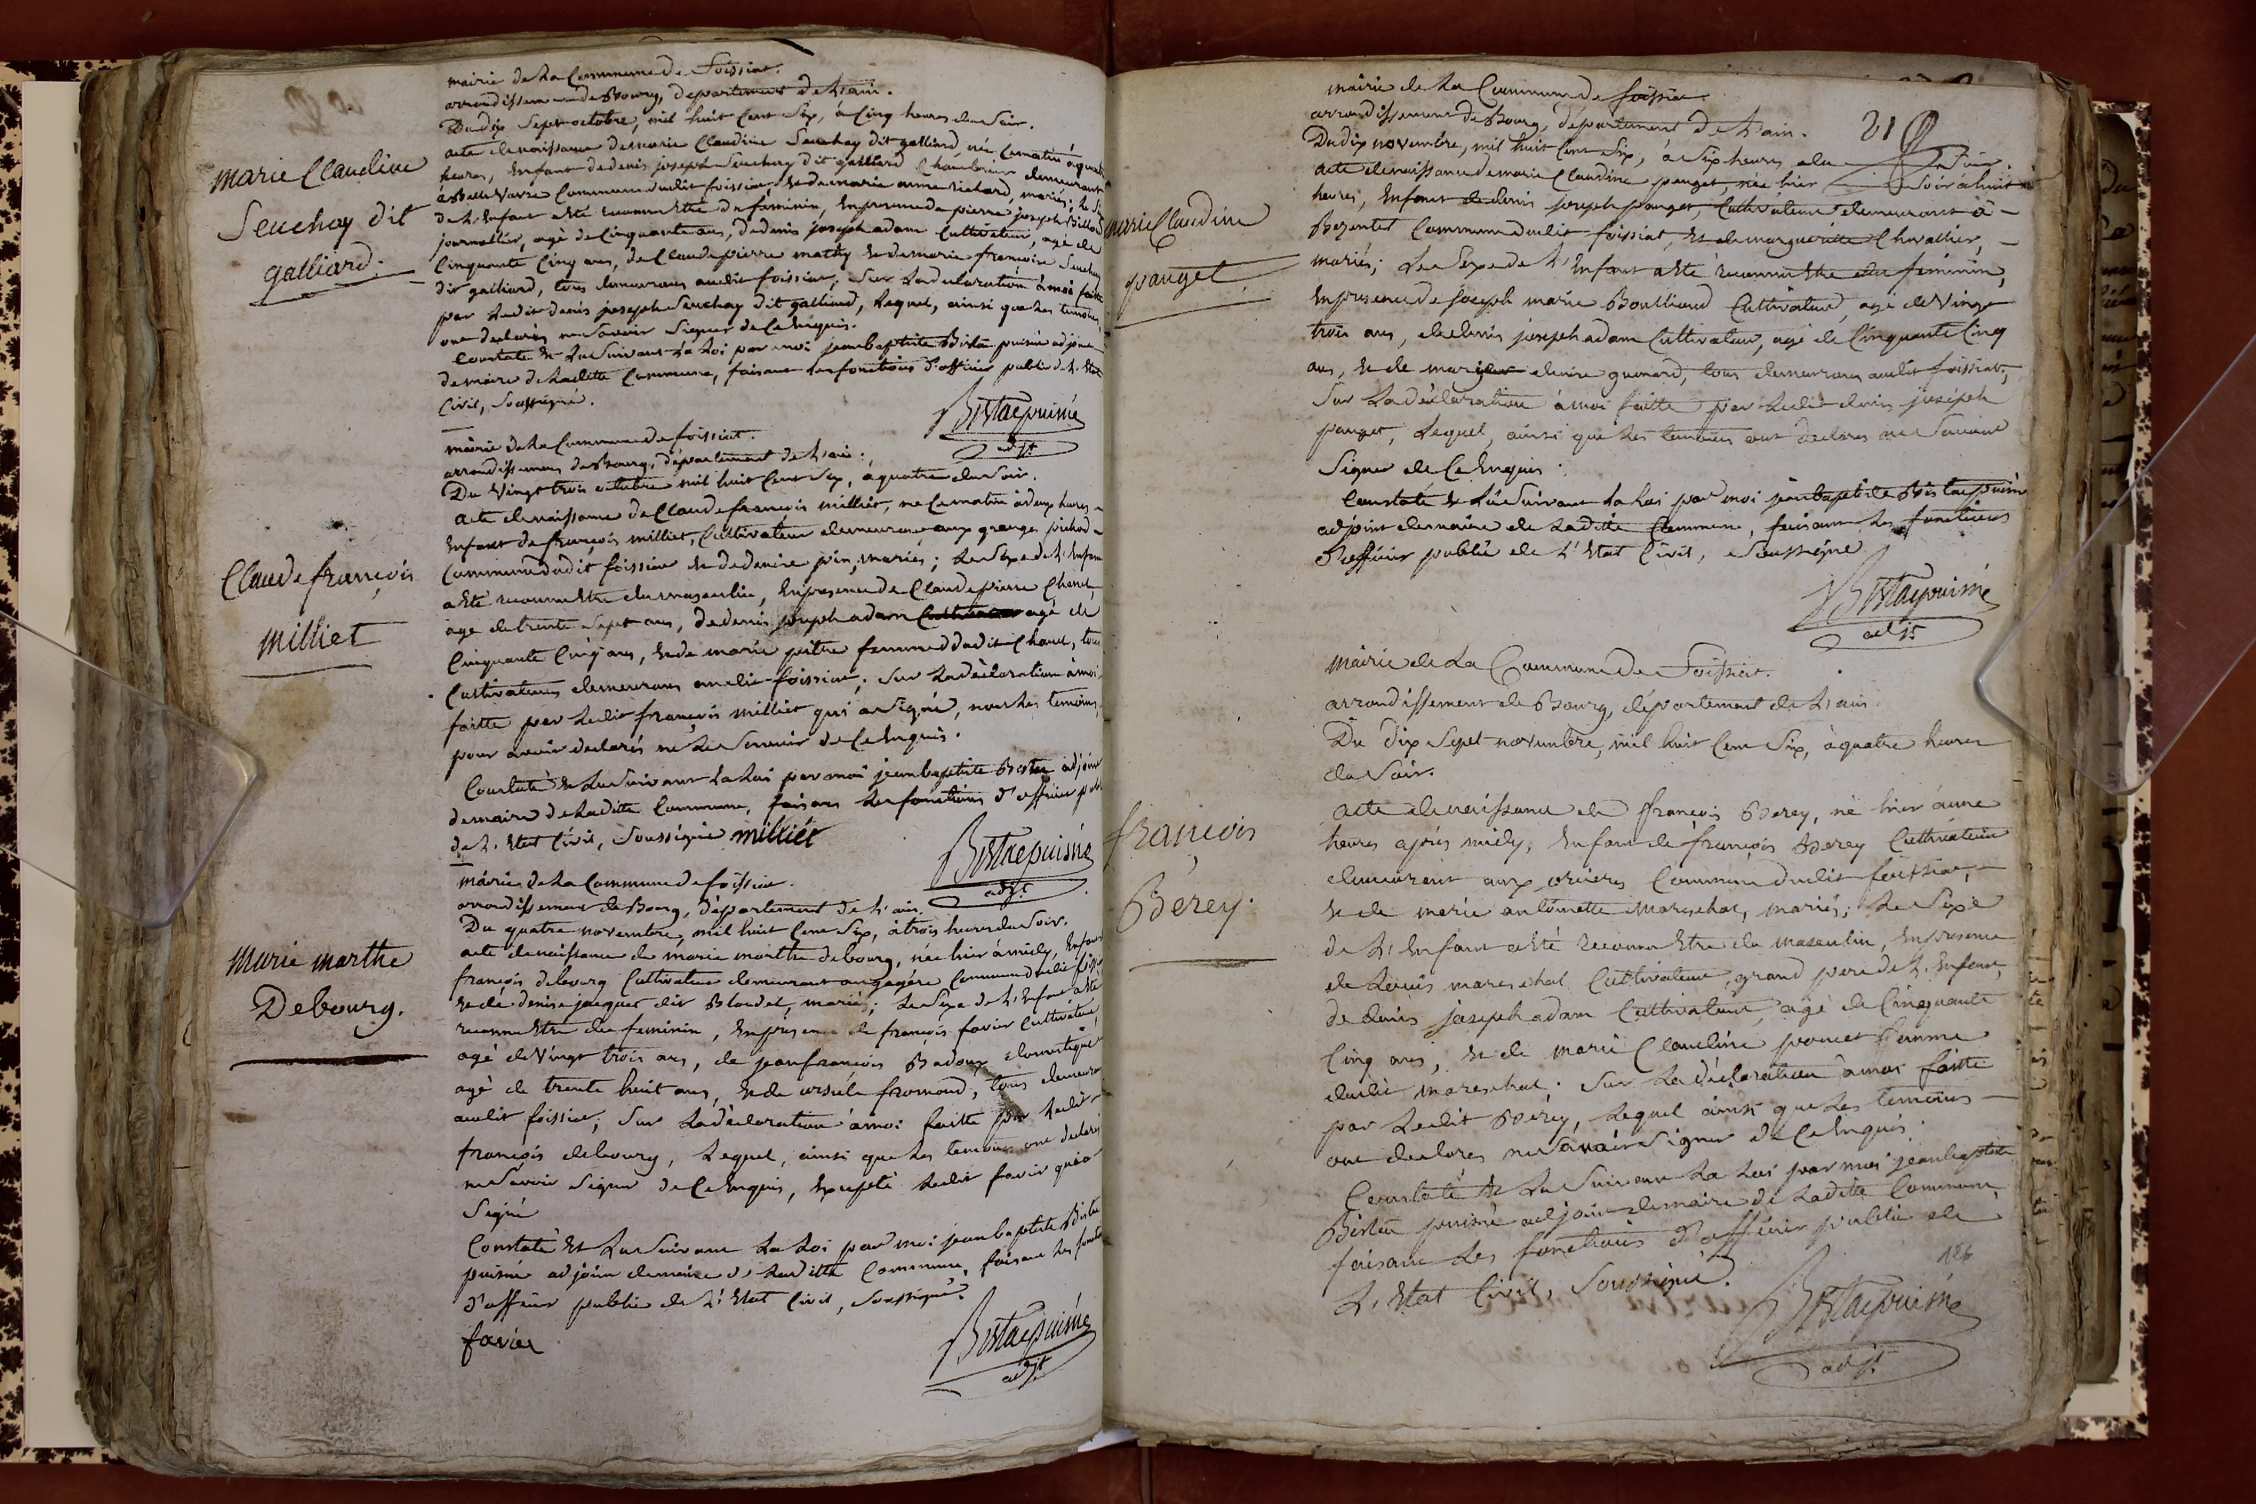 mairie de La Commune de Foissiat.
arrondissement de Bourg, departement de L'ain.
Du dix Sept octobre, mil huit Cent Six, à Cinq heures du Soir.
acte de naissance de marie Claudine Seuchay dit galliard, née Cematin à quatre
heures, Enfant de denis joseph Seuchay dit galliard demeurant
Commune dudit foissiat et de marie anne Richard, mariés; Le Sexe
de L'Enfant a Eté reconnu Etre du feminin, En presence de pierre joseph Billoud
journallier, agé de Cinquante ans, de denis joseph adam Cultivateur, agé de
Cinquante Cinq ans, de Claude pierre mathy et de marie francoise Seuchay
dit galliard, tous demeurans audit foissiat; Sur La declaration à moi faitte
par Ledit denis joseph Seuchay dit galliard, Lequel, ainsi que Les temoins,
ont declarés ne Savoir Signer de Ce Enquis.
Constaté et Lu Suivant La Loi par moi jean baptiste Bistac puisné adjoint
de maire de Laditte Commune, faisant Les fonctions d'officier public de L'Etat
Civil, Soussigné.
Bistac puisné
adjt
marie Claudine
Seuchay dit
galliard.
mairie de La Commune de foissiat.
arrondissement de Bourg, departement de L'ain.
Du Vingt trois octobre mil huit Cent Six, à quatre du Soir.
acte de naissance de Claude francois milliet, né Cematin à deux heures
Enfant de françois milliet, Cultivateur demeurant aux granges pichod
Commune dudit foissiat et de denise pin, mariés; Le Sexe de L'Enfant
a Eté reconnu Etre du masculin, En presence de Claude pierre Chanel,
agé de trente Sept ans, de denis joseph adam Cultivateur agé de
Cinquante Cinq ans, et de marie pitre femme dudit Chanel, tous
Cultivateurs demeurans audit foissiat; Sur La déclaration à moi
faitte par Ledit françois milliet qui a Signé, non Les temoins,
pour avoir declarés ne Le Savoir de Ce Enquis.
Constaté et Lu Suivant La Loi par moi jean baptiste Bistac adjoint
de maire de Laditte Commune, faisant Les fonctions d'officier public
de L'Etat Civil, Soussigné milliet
Bistac puisné
adjt
Claude françois
milliet
mairie de La Commune de foissiat.
arrondissement de Bourg, departement de L'ain.
Du quatre novembre, mil huit Cent Six, à trois heures du Soir.
acte de naissance de marie marthe debourg, née hier à midy, Enfant
françois debourg Cultivateur demeurant Commune dudit
et de denise jacquet dit Blondel, mariés; Le Sexe de L'Enfant a Eté
reconnu Etre du feminin, En presence de françois favier Cultivateur
agé de Vingt trois ans, de jean françois Badoux domestique
agé de trente huit ans, et de ursule fromond, tous demeurans
audit foissiat; Sur La déclaration à moi faitte par Ledit
françois debourg, Lequel, ainsi que Les temoins ont declarés
ne Savoir Signer de Ce Enquis, Excepté Ledit favier qui a
Signé
Constaté Et Lu Suivant La Loi par moi jean baptiste Bistac
puisné adjoint de maire de Laditte Commune, faisant Les fonctions
d'officier public de L'Etat Civil, Soussigné.
favier
Bistac puisné
adjt
marie marthe
Debourg.
218
mairie de La Commune de foissiat
arrondissement de Bourg, departement de L'ain.
Du dix novembre, mil huit Cent Six, à Six heures du Soir.
acte de naissance de marie Claudine pauget, née hier Soir à huit
heures, Enfant de denis joseph pauget, Cultivateur demeurant à
Bezentet Commune dudit foissiat, et de marguerite Chevallier,
mariés; Le Sexe de L'Enfant a Eté reconnu Etre du féminin,
En presence de joseph marie Boulliaud Cultivateur, agé de Vingt
trois ans, de denis joseph adam Cultivateur, agé de Cinquante Cinq
ans, et de marie denise guenard, tous demeurans audit foissiat;
Sur La déclaration à moi faitte par Ledit denis joseph
pauget, Lequel, ainsi que Les temoins ont declarés ne Savoir
Signer de Ce Enquis.
Constaté et Lu Suivant La Loi par moi jean baptiste Bistac puisné
adjoint de maire de Laditte Commune, faisant Les fonctions
d'officier public de L'Etat Civil, Soussigné
Bistac puisné
adjt
marie Claudine
pauget
mairie de La Commune de Foissiat.
arrondissement de Bourg, département de L'ain.
Du dix Sept novembre, mil huit Cent Six, à quatre heures
du Soir.
acte de naissance de françois Berey, né hier à une
heures après midy, Enfant de françois Berey Cultivateur
demeurant aux orières Commune dudit foissiat,
et de marie antoinette mareschal, mariés; Le Sexe
de L'Enfant a Eté reconnu Etre du masculin, En presence
de Louis mareschal Cultivateur, grand pere de L'Enfant,
de denis joseph adam Cultivateur, agé de Cinquante
Cinq ans, et de marie Claudine poncet femme
dudit mareschal. Sur La déclaration à moi faitte
par Ledit Berey, Lequel ainsi que Les temoins
ont declarés ne Savoir Signer de Ce Enquis.
Constaté Et Lu Suivant La Loi par moi jean baptiste
Bistac puisné adjoint de maire de Laditte Commune,
faisant Les fonctions d'officier public de
L'Etat Civil, Soussigné.
186
Bistac puisné
adjt
françois
Bérey.